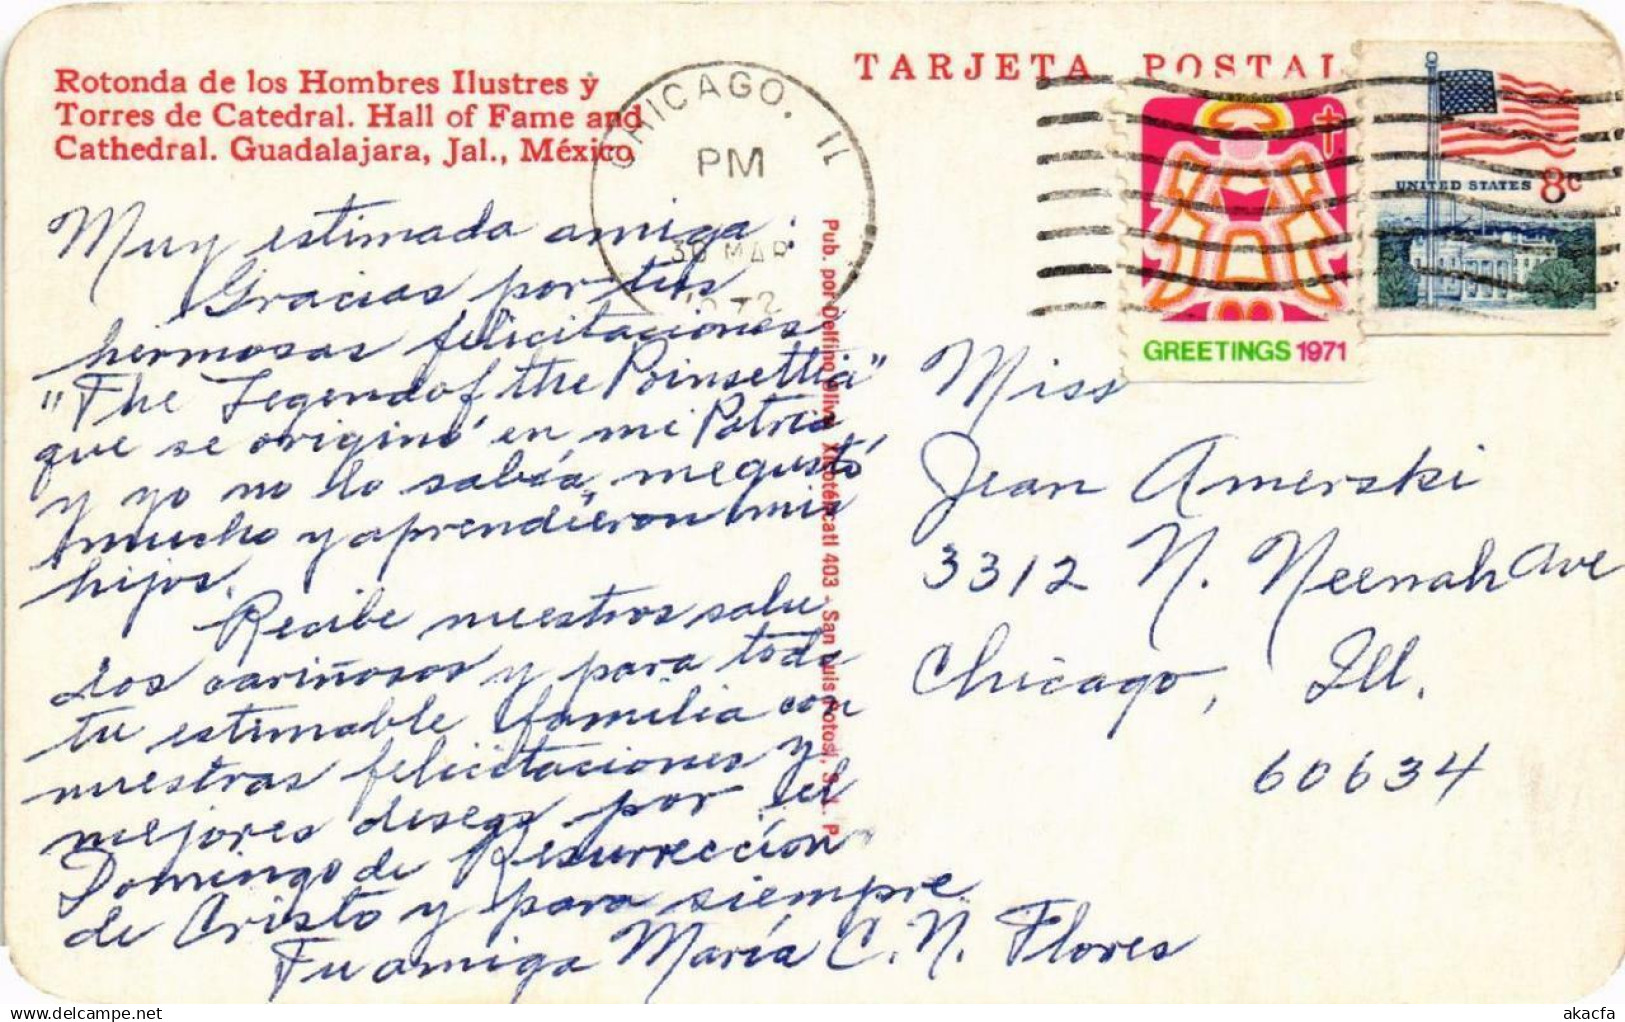 Rotonda de los Hombres Ilustres y
Torres de Catedral. Hall of Fame and
Cathedral. Guadalajara, Jal., México
TARJETA POSTAL
CHICAGO, IL
PM
30 MAR
1972
UNITED STATES 8c
GREETINGS 1971
Muy estimada amiga:
Gracias por tus
hermosas felicitaciones
"The Legend of the Poinsettia"
que se originó en mi Patria
y yo no lo sabía, me gustó
mucho y aprendieron mis
hijos.
Recibe nuestros salu
dos cariñosos y para toda
tu estimable familia con
nuestras felicitaciones y
mejores deseos por el
Domingo de Resurrección
de Cristo y para siempre
Tu amiga María C. N. Flores
Pub. por Delfino Oliva Xicoténcatl 403 - San Luis Potosí, S. L. P.
Miss
Jean Amerski
3312 N. Neenah Ave
Chicago, Ill.
60634
akacfa